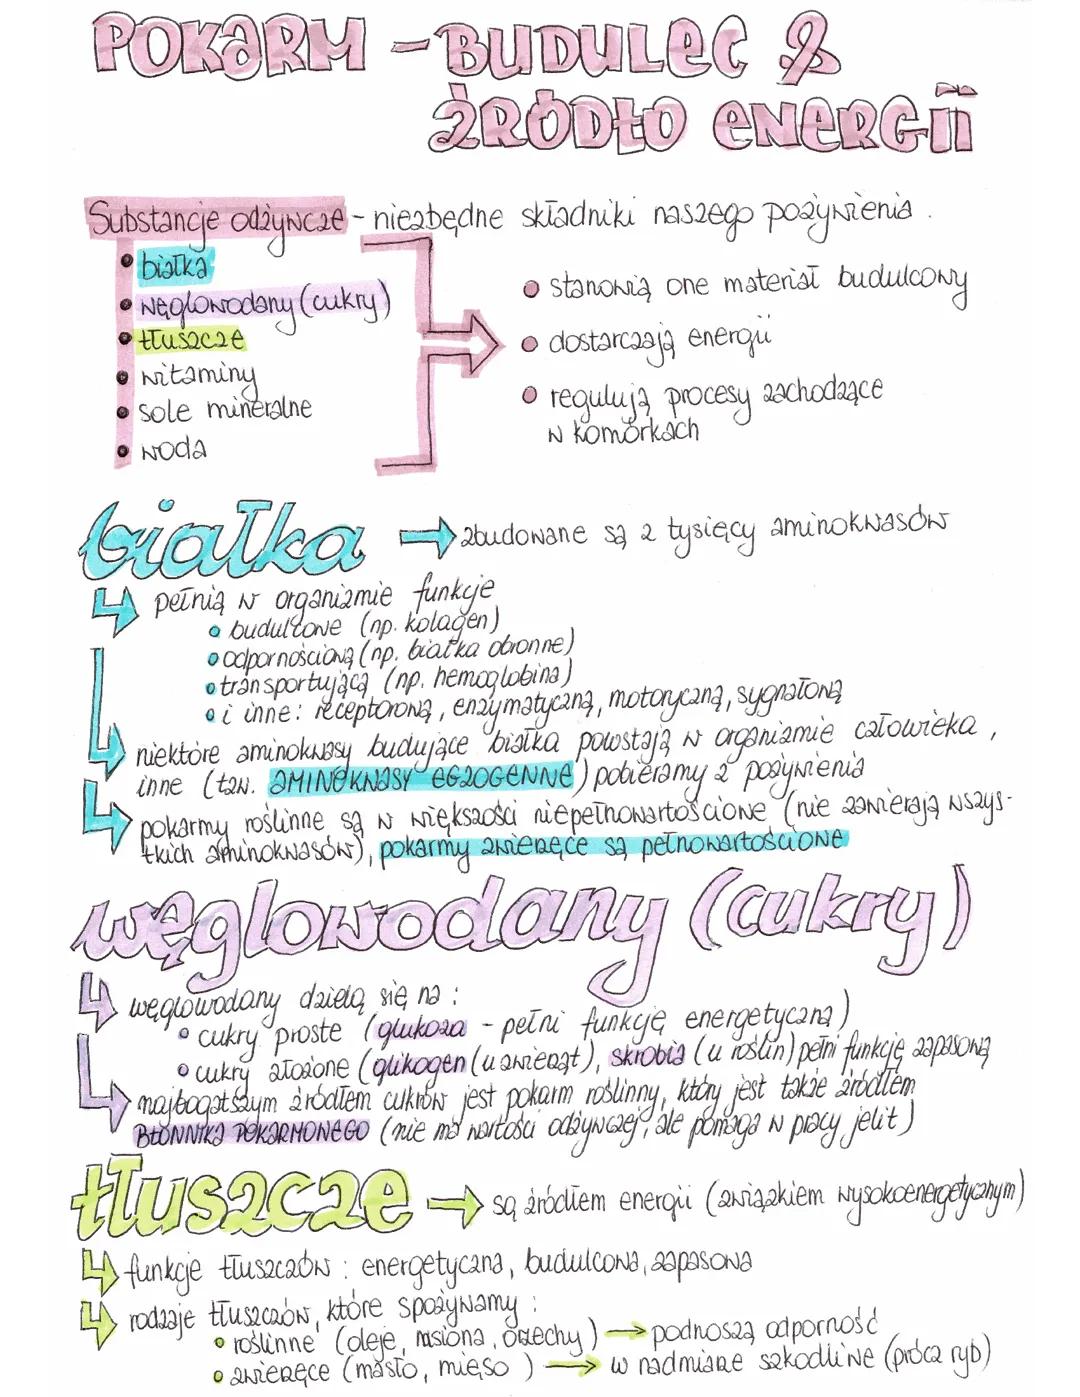 POKARM - BUDULEC &
ŹRÓDŁO ENERGII
Substancje odżywcze - niezbędne składniki naszego pożywienia.
• białka
• węglowodany (cukry)
• tłuszcze
• witaminy
• sole mineralne
• woda
• stanowią one materiał budulcowy
• dostarczają energii
• regulują procesy zachodzące
w komórkach
białka → zbudowane są z tysięcy aminokwasów
pełnią w organizmie funkcje
• budulcowe (np. kolagen)
• odpornościową (np. białka obronne)
• transportującą (np. hemoglobina)
• i inne: receptorową, enzymatyczną, motoryczną, sygnałową
niektóre aminokwasy budujące białka powstają w organizmie człowieka,
inne (tzw. AMINOKWASY EGZOGENNE) pobieramy z pożywienia
pokarmy roślinne są w większości niepełnowartościowe (nie zawierają wszys-
tkich aminokwasów), pokarmy zwierzęce są pełnowartościowe
węglowodany (cukry)
węglowodany dzielą się na:
• cukry proste (glukoza - pełni funkcję energetyczną)
• cukry złożone (glikogen (u zwierząt), skrobia (u roślin) pełni funkcję zapasową
najbogatszym źródłem cukrów jest pokarm roślinny, który jest także źródłem
BŁONNIKA POKARMOWEGO (nie ma wartości odżywczej, ale pomaga w pracy jelit)
tłuszcze → są źródłem energii (związkiem wysokoenergetycznym)
funkcje tłuszczów: energetyczna, budulcowa, zapasowa
rodzaje tłuszczów, które spożywamy:
• roślinne (oleje, nasiona, orzechy) → podnoszą odporność
• zwierzęce (masło, mięso) → w nadmiarze szkodliwe (prócz ryb)